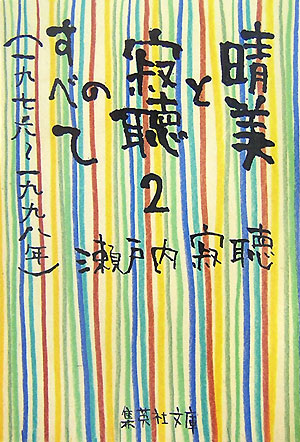 晴美と
寂聴の
すべて
2
(一九七六〜一九九八年)
瀬戸内寂聴
集英社文庫